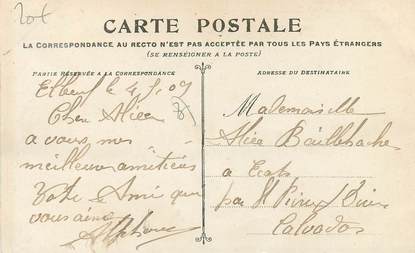 CARTE POSTALE
LA CORRESPONDANCE AU RECTO N'EST PAS ACCEPTÉE PAR TOUS LES PAYS ÉTRANGERS
(SE RENSEIGNER A LA POSTE)
PARTIE RÉSERVÉE A LA CORRESPONDANCE
Elbeuf le
Chere Alice
a vous mes
meilleures amitiées
Votre Ami que
vous aime
Alphonse
ADRESSE DU DESTINATAIRE
Mademoiselle
Alice
a
par St Pierre
Calvados